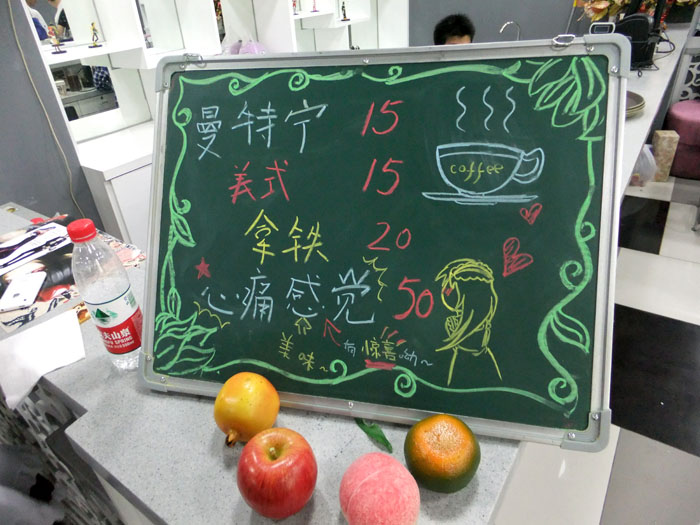 曼特宁 15
coffee
美式 15
拿铁 20
心痛感觉 50
美味~ 有惊喜呦~